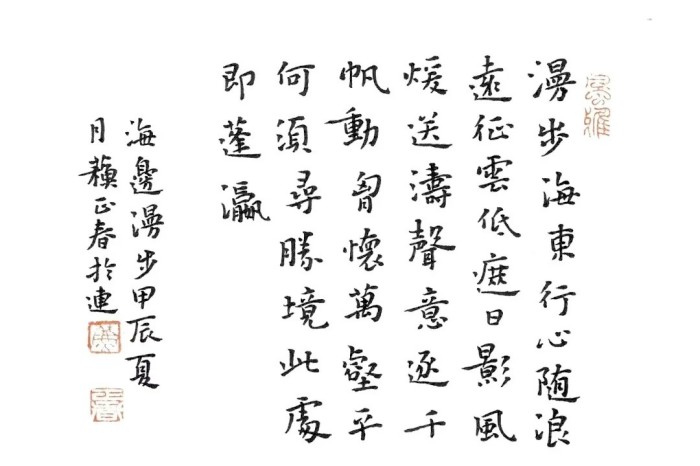 漫步海東行心随浪
遠征雲低遮日影風
煖送濤聲意逐千
帆動胷懷萬壑平
何須尋勝境此處
即蓬瀛
海邊漫步甲辰夏
月正春於連